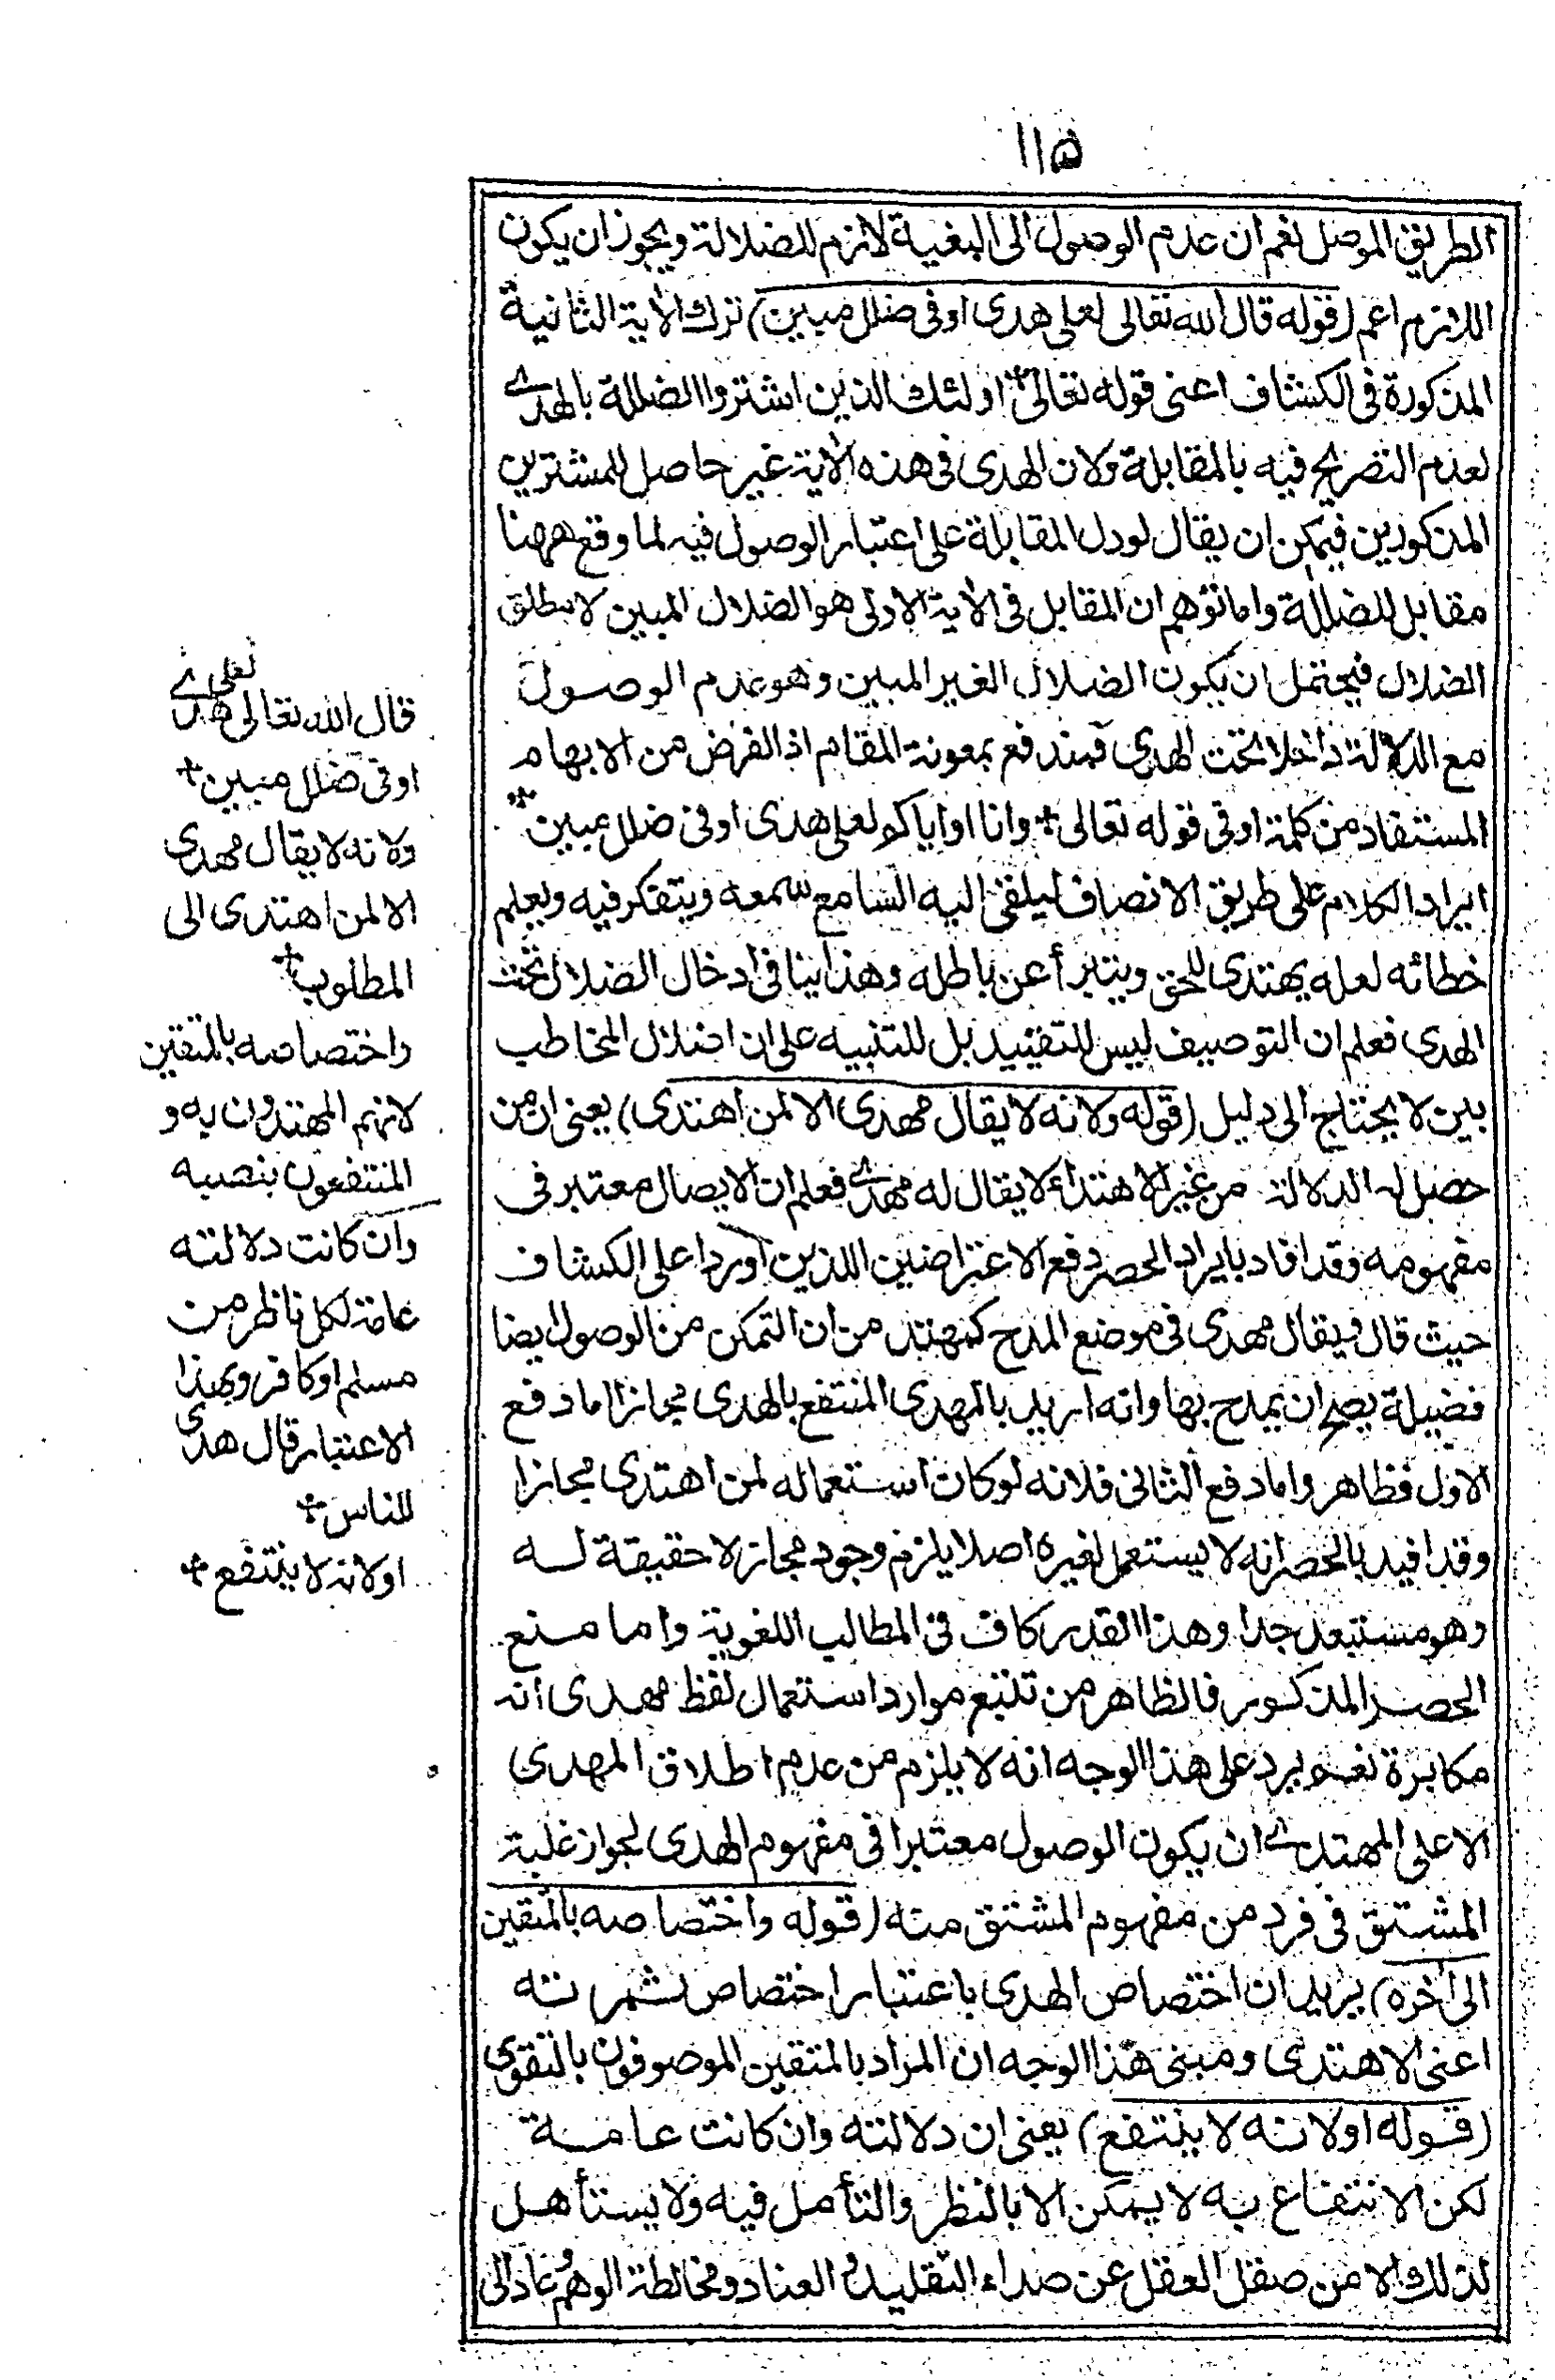 ١١۵
الطريق الموصل نعم ان عدم الوصول الى البغية لازم للضلالة ويجوز ان يكون
اللازم اعم (قوله قال الله تعالى لعلى هدى او فى ضلل مبين) ترك الآية الثانية
المذكورة فى الكشاف اعنى قوله تعالى + اولئك الذين اشتروا الضللة بالهدے
لعدم التصريح فيه بالمقابلة ولان الهدى فى هذه الآية غير حاصل للمشترين
المذكورين فيمكن ان يقال لو دل المقابلة على اعتبار الوصول فيه لما وقع ههنا
مقابل للضلالة واما توهم ان المقابل فى الآية الاولى هو الضلال المبين لا مطلق
الضلال فيحتمل ان يكون الضلال الغير المبين وهو عدم الوصول
مع الدلالة داخلا تحت الهدى فمندفع بمعونة المقام اذ الغرض من الابهام
المستفاد من كلمة او فى قوله تعالى + وانا او اياكم لعلى هدى او فى ضلل مبين +
ايراد الكلام على طريق الانصاف ليلقى اليه السامع سمعه ويتفكر فيه ويعلم
خطائه لعله يهتدى للحق ويتبرأ عن باطله وهذا ينافى ادخال الضلال تحت
الهدى فعلم ان التوصيف ليس للتقييد بل للتنبيه على ان اضلال المخاطب
بين لا يحتاج الى دليل (قوله ولانه لا يقال مهدى الا لمن اهتدى) يعنى ان من
حصل له الدلالة من غير الاهتداء لا يقال له مهدے فعلم ان الايصال معتبر فى
مفهومه وقد افاد بايراد الحصر دفع الاعتراضين اللذين اوردا على الكشاف
حيث قال ويقال مهدى فى موضع المدح كمهتد من ان التمكن من الوصول ايضا
فضيلة يصح ان يمدح بها وانه اريد بالمهدى المنتفع بالهدى مجازا اما دفع
الاول فظاهر واما دفع الثانى فلانه لو كان استعماله لمن اهتدى مجازا
وقد افيد بالحصر انه لا يستعمل لغيره اصلا يلزم وجود مجاز لا حقيقة لــه
وهو مستبعد جدا وهذا القدر كاف فى المطالب اللغوية واما منع
الحصر المذكور فالظاهر من تتبع موارد استعمال لفظ مهدى انه
مكابرة نعم يرد على هذا الوجه انه لا يلزم من عدم اطلاق المهدى
الا على المهتدے ان يكون الوصول معتبرا فى مفهوم الهدى لجواز غلبة
المشتق فى فرد من مفهوم المشتق منه (قوله واختصاصه بالمتقين
الى آخره) يريد ان اختصاص الهدى باعتبار اختصاص ثمرته
اعنى الاهتدى ومبنى هذا الوجه ان المراد بالمتقين الموصوفون بالتقوى
(قوله او لانه لا ينتفع) يعنى ان دلالته وان كانت عامة
لكن الانتفاع به لا يمكن الا بالنظر والتأمل فيه ولا يستأهل
لذلك الا من صقل العقل عن صداء التقليد والعناد ومخالطة الوهم
قال الله تعالى لعلى هدے
او فى ضلل مبين +
ولانه لا يقال مهدى
الا لمن اهتدى الى
المطلوب +
واختصاصه بالمتقين
لانهم المهتدون به و
المنتفعون بنصبه
وان كانت دلالته
عامة لكل ناظر من
مسلم او كافر وبهذا
الاعتبار قال هدى
للناس +
او لانه لا ينتفع +